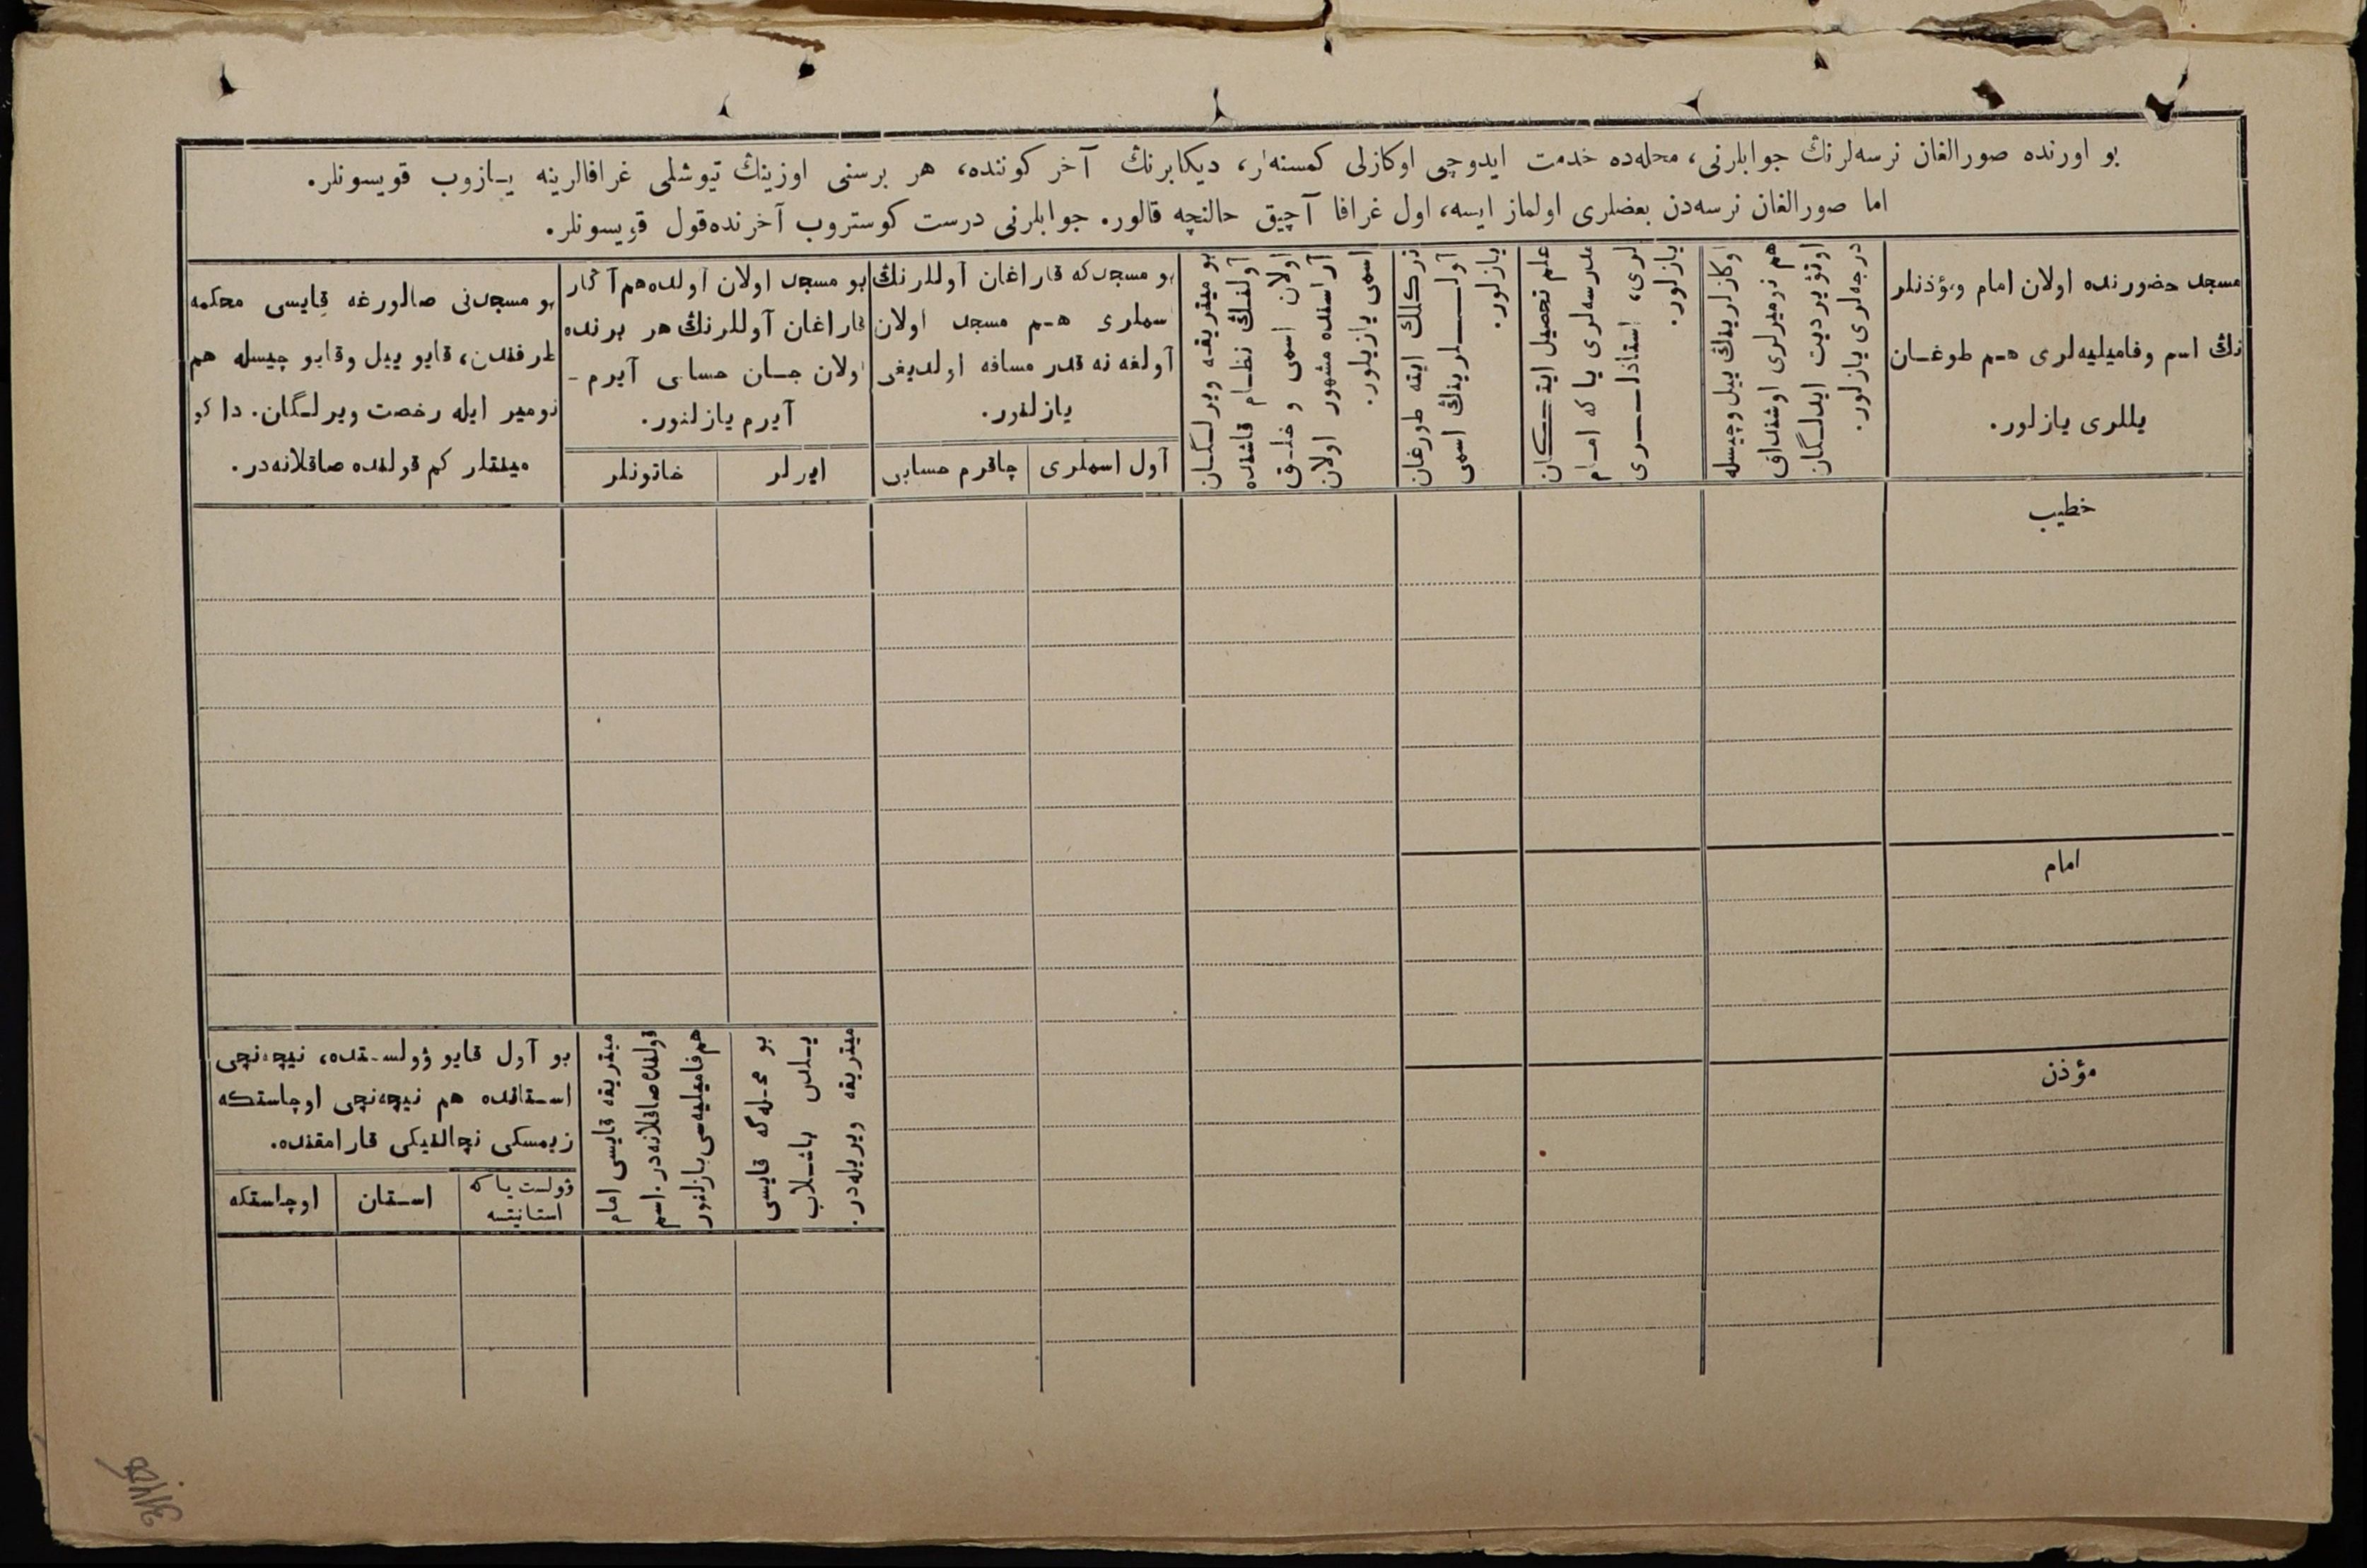 بو اورنده صورالغان نرسه‌لرنڭ جوابلرنی، محله‌ده خدمت ایدوچی اوکازلی کمسنه‌لر، دیکابرنڭ آخر کوننده، هر برسنی اوزینڭ تیوشلی غرافالرینه یازوب قویسونلر.
اما صورالغان نرسه‌دن بعضلری اولماز ایسه، اول غرافا آچیق حالنچه قالور. جوابلرنی درست کوستروب آخرنده قول قویسونلر.
مسجد حضورنده اولان امام ومؤذنلر
نڭ اسم وفامیلیه‌لری هم طوغان
یللری یازلور.
اوکازلرینڭ ییل وچیسله
هم نومیرلری اوشنداق
اوقؤ یردیت ایدلگان
درجه‌لری یازلور.
علم تحصیل ایتکان
مدرسه‌لری یا که امام
لری، استاذلری
یازلور.
نزرکلك ایته طورغان
آوللرینڭ اسمی
یازلور.
بو میتریقه ویرلگان
آولنڭ نظام قاشنده
اولان اسمی و خلق
آراسنده مشهور اولان
اسمی یازیلور.
بو مسجدکه قاراغان آوللرنڭ
اسملری هم مسجد اولان
آولغه نه قدر مسافه اولدیغی
یازلنور.
آول اسملری
چاقرم حسابی
بو مسجد اولان آولده هم آڭار
قاراغان آوللرنڭ هر برنده
اولان جان حسابی آیرم -
آیرم یازلنور.
ایرلر
خاتونلر
بو مسجدنی صالورغه قایسی محکمه
طرفندن، قایو ییل وقایو چیسله هم
نومیر ایله رخصت ویرلگان. داکو
مینتلر کم قولنده صاقلانه‌در.
خطیب
امام
مؤذن
بو محله‌گه قایسی
یلدن باشلاب
میتریقه ویریله‌در.
میتریقه قایسی امام
قولنده صاقلانه‌در. اسم
هم فامیلیه‌سی یازلنور
بو آول قایو ؤولستده، نیچه‌نچی
استانده هم نیچه‌نچی اوچاستکه
زیمسکی نچالنیکی قارامقنده.
ؤولست یا که
استانیتسه
استان
اوچاستکه